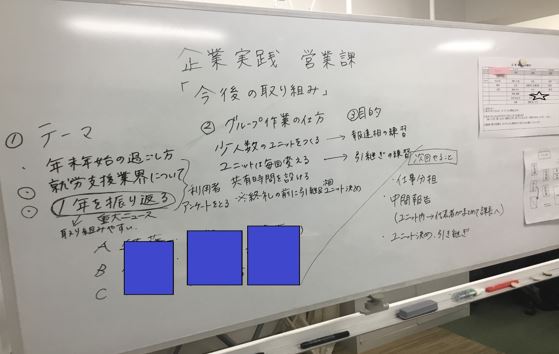 企業実践 営業課
「今後の取り組み」
① テーマ
・年末年始の過ごし方
・就労支援業界について
・1年を振り返る
重大ニュース
取り組みやすい
利用者
アンケートをとる
② グループ作業の仕方
少人数のユニットをつくる
ユニットは毎回変える
共有時間を設ける
※終礼の前に引継ぎ
ユニット決め
③ 目的
報連相の練習
引継ぎの練習
次回やること
・仕事分担
・中間報告
(ユニット内→代表者がまとめて課長へ)
・ユニット決め、引き継ぎ
A
B
C